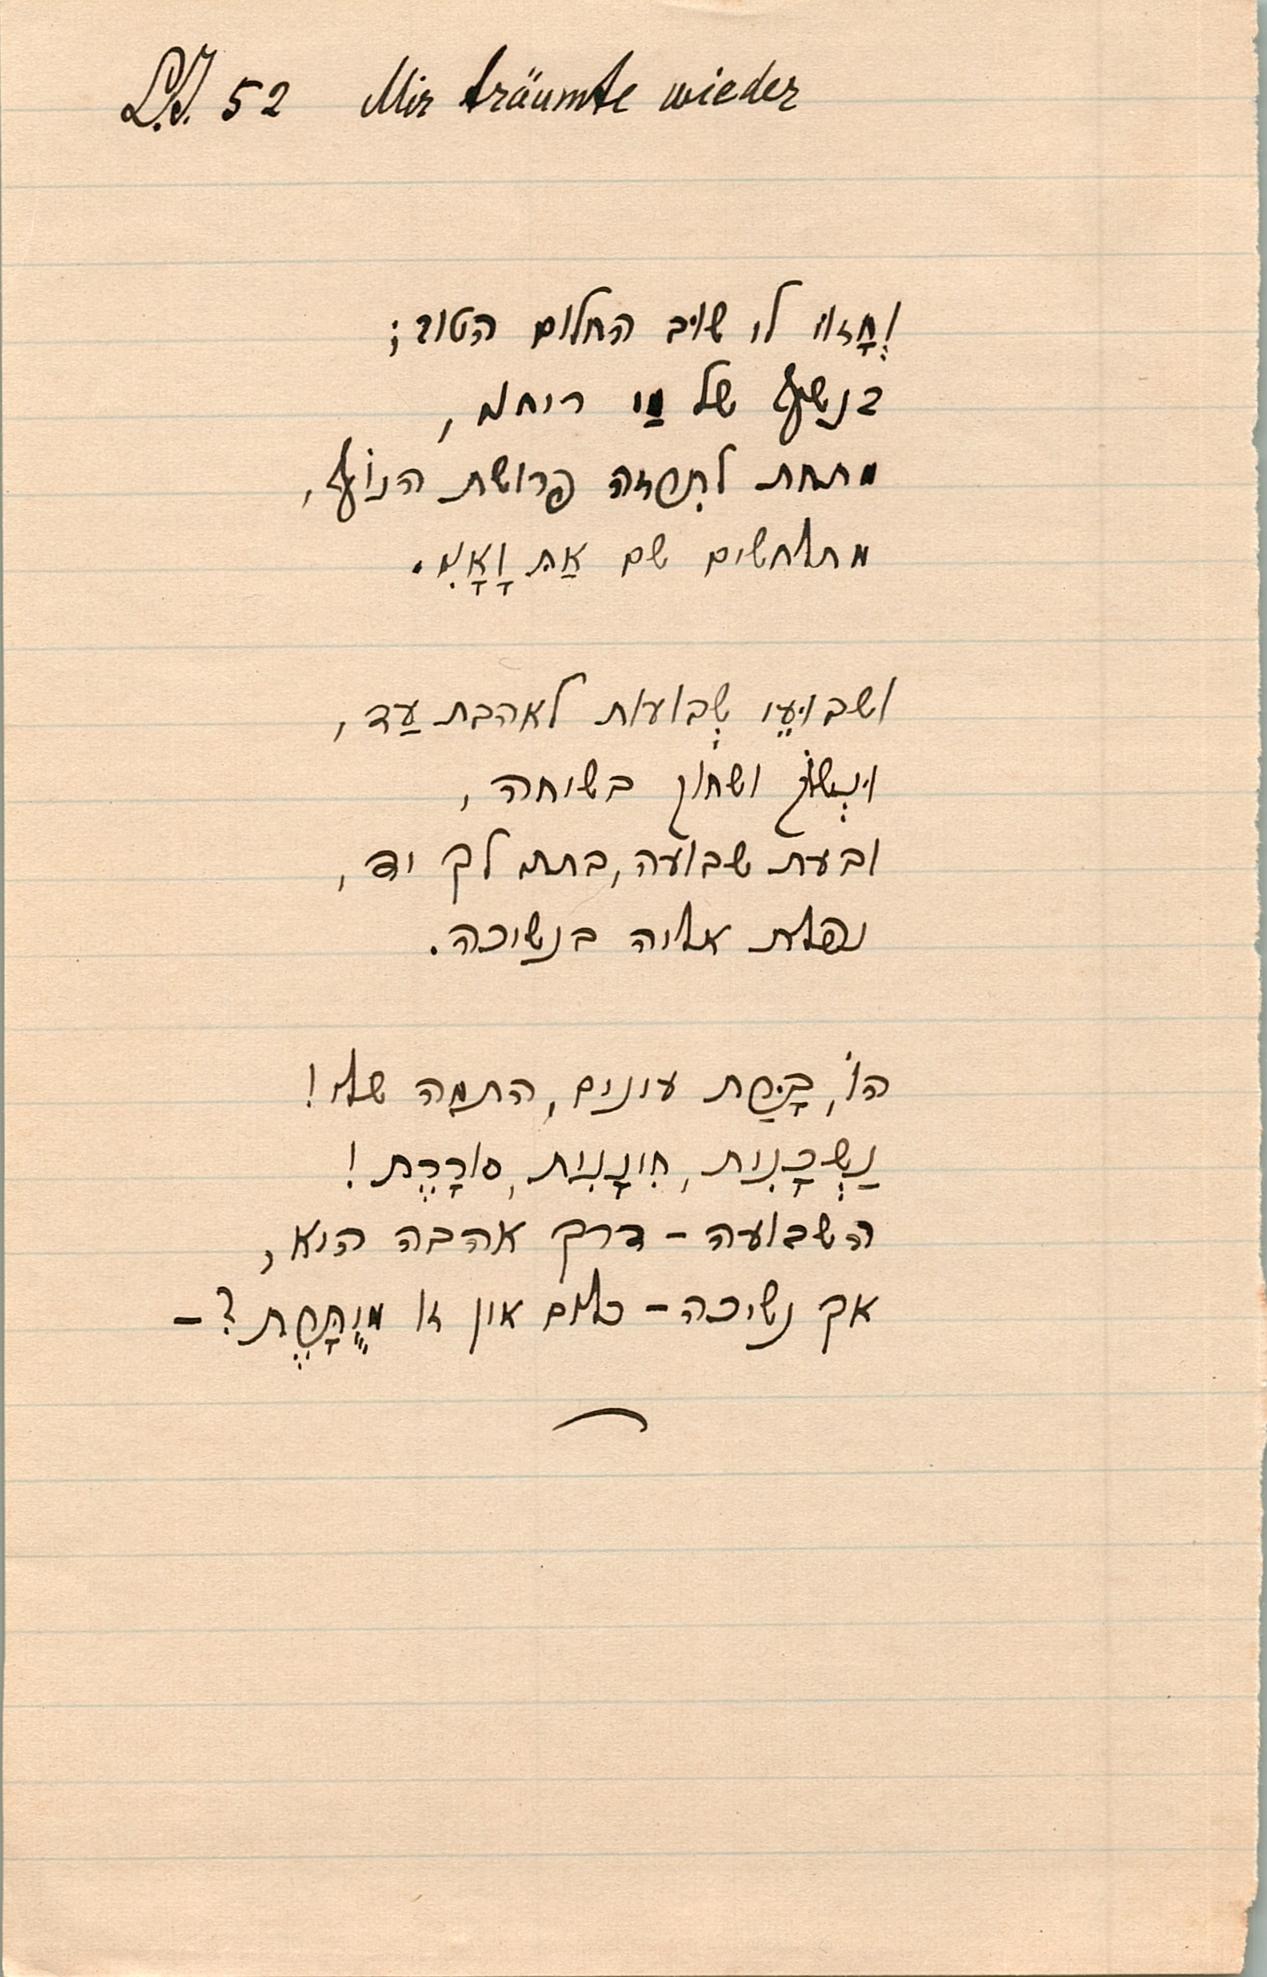 L.I. 52 Mir träumte wieder
וְחָזוּי לי שוּב החלום הטוב;
בנשף של מַי ריחני,
מתחת לתִּרזה פרושת הנוֹף,
מתלחשים שם אַתְּ וָאָנִי.
ושבוּעֵי שְׁבועות לאהבת עַד,
וּנְשׁוֹק ושחוֹק בשיחה,
ובעת שבועה, בתתי לך יד,
נפלת אליה בנשיכה.
הוֹ, בָּרַּת עינים, התמה שלי!
נַשְׁכָנִית, חִינָנִית, סורָרֶת!
השבועה – דרך אהבה היא,
אך נשיכה – כלום אין זו מְיֻתֶּרֶת? –